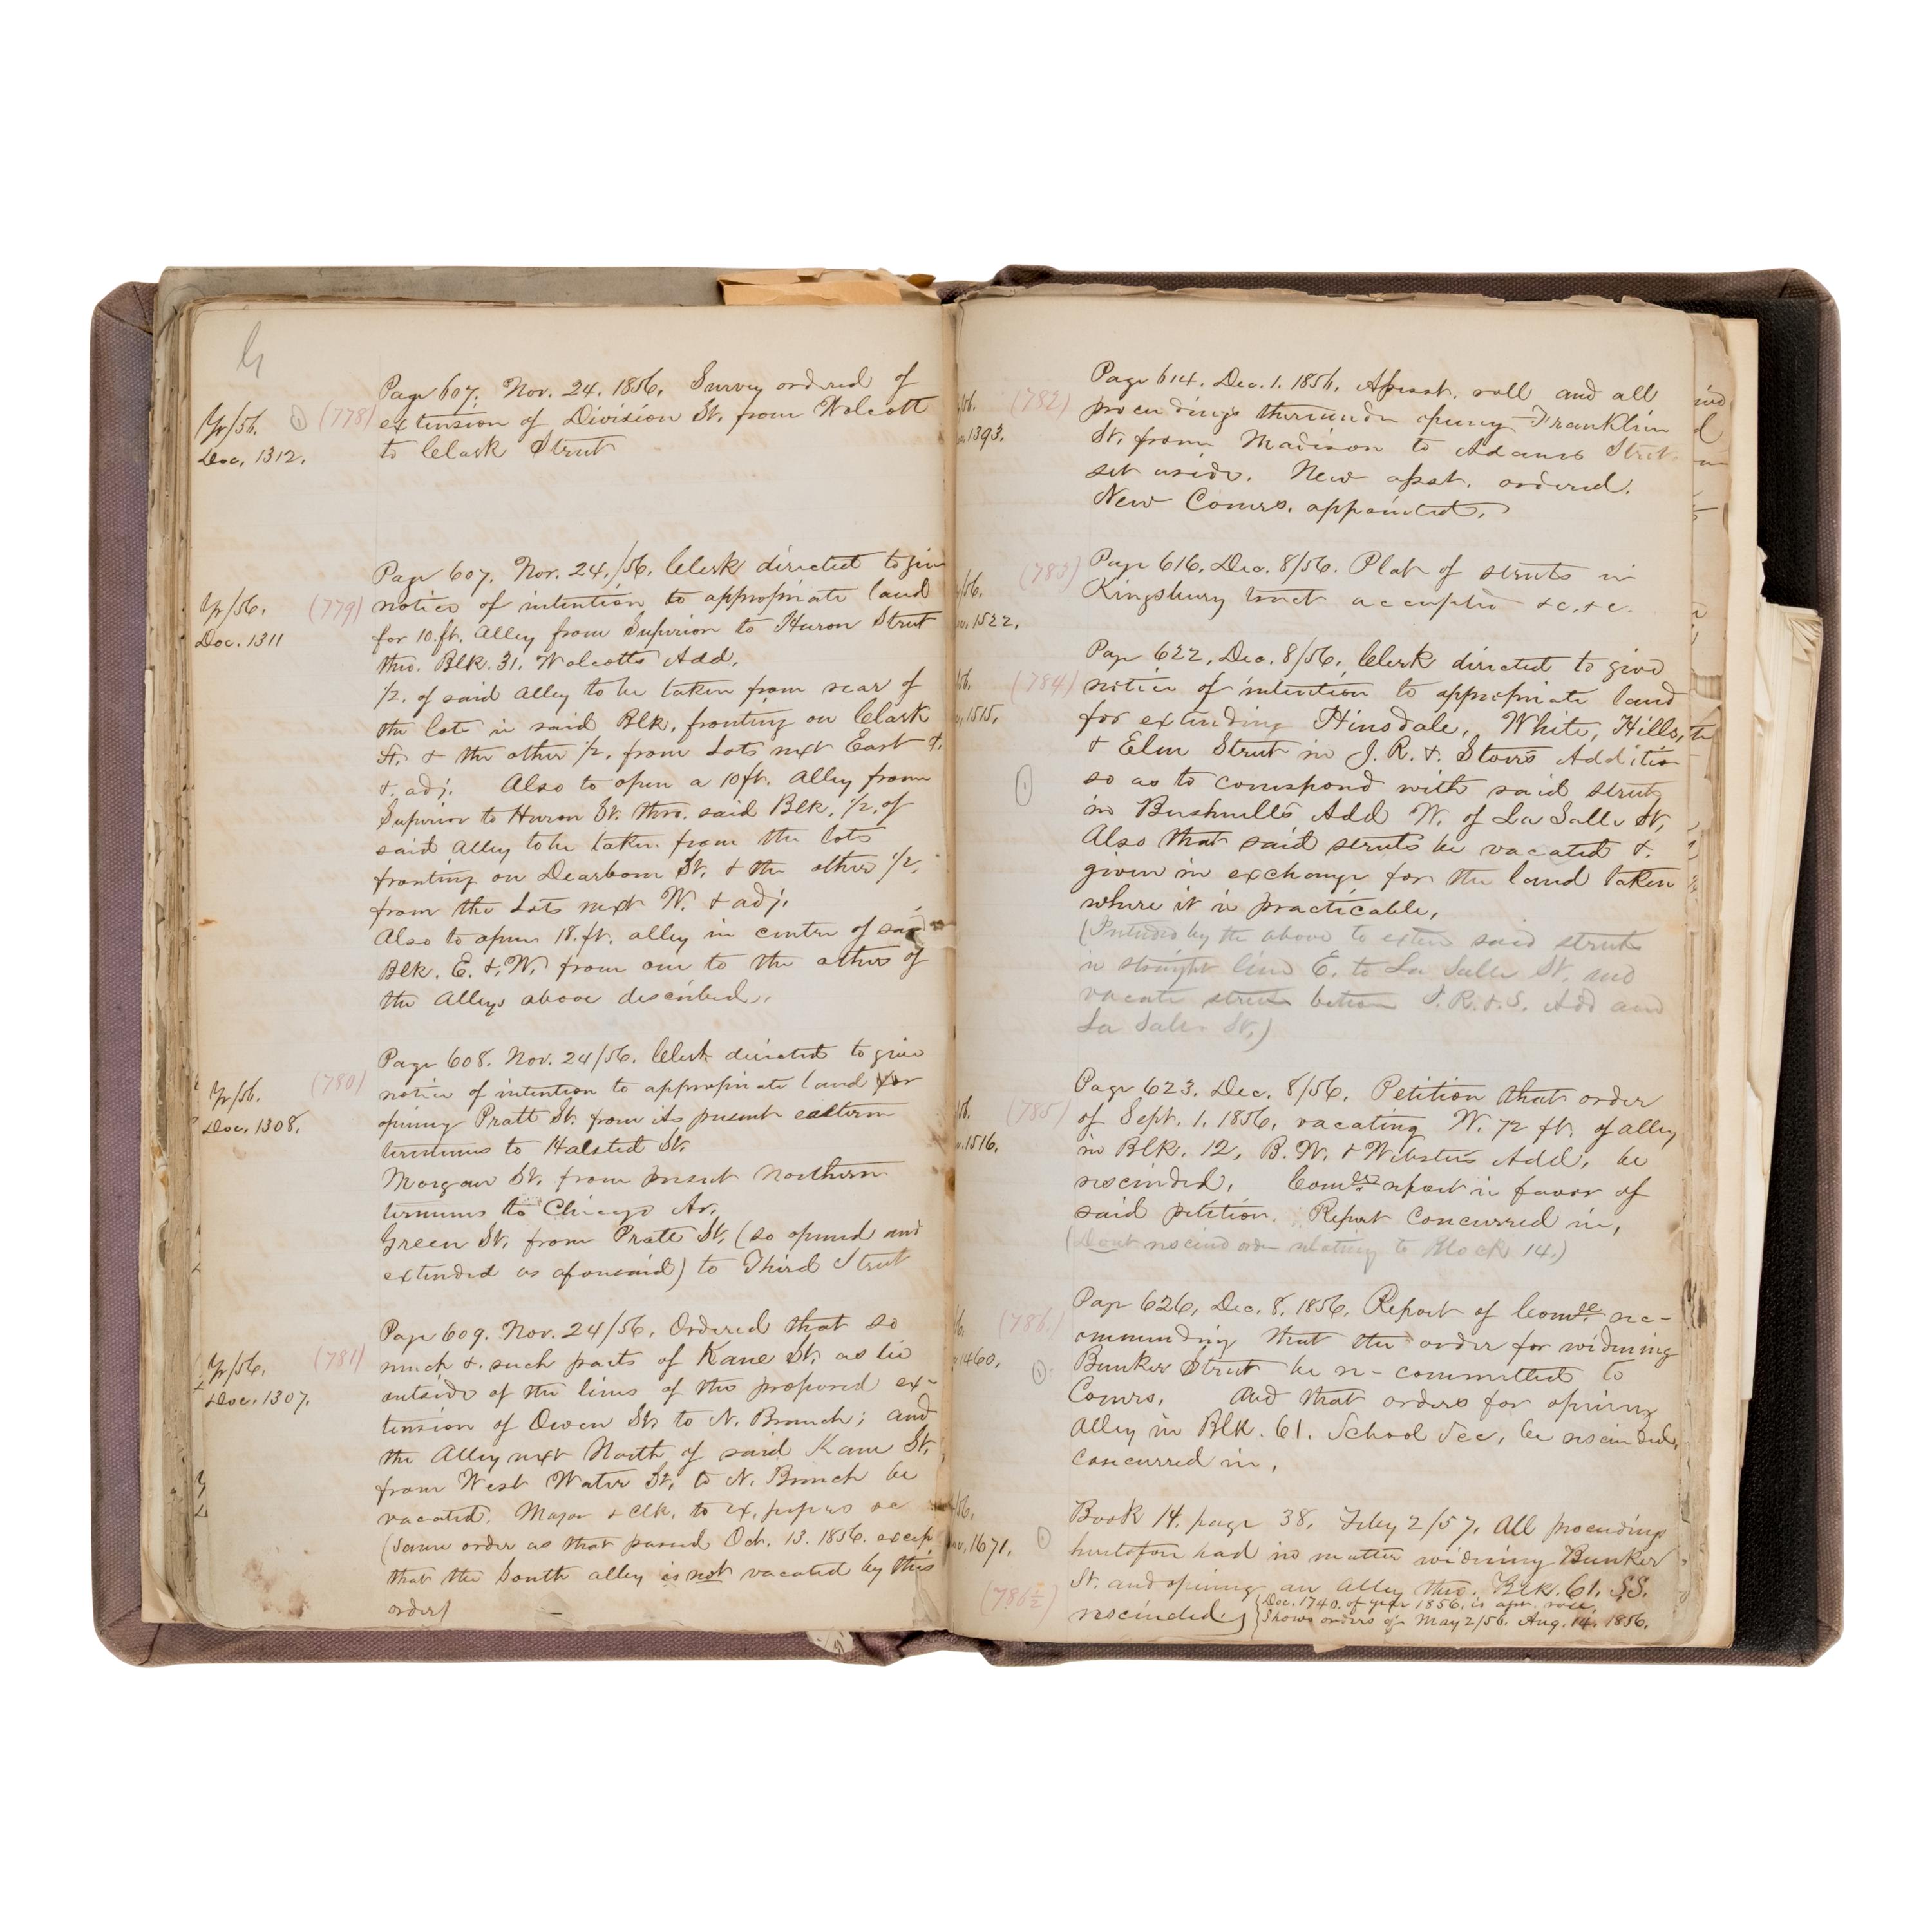 Yr/56.
Doc. 1312.
(778)
Page 607. Nov. 24. 1856. Survey ordered of
extension of Division St. from Wolcott
to Clark Street
Yr/56.
Doc. 1311
(779)
Page 607. Nov. 24./56. Clerk directed to give
notice of intention to appropriate land
for 10 ft. Alley from Superior to Huron Street
thro. Blk. 31. Wolcotts Add.
1/2. of said Alley to be taken from rear of
the lots in said Blk. fronting on Clark
St. & the other 1/2. from Lots next East &.
&. adj. Also to open a 10 ft. Alley from
Superior to Huron St. thro. said Blk. 1/2. of
said Alley to be taken from the lots
fronting on Dearborn St. & the other 1/2.
from the Lots next W. & adj.
Also to open 18. ft. alley in centre of said
Blk. E. &. W. from one to the other of
the Alleys above described.
Yr/56.
Doc. 1308.
(780)
Page 608. Nov. 24/56. Clerk directed to give
notice of intention to appropriate land for
opening Pratt St. from its present eastern
terminus to Halsted St.
Morgan St. from present northern
terminus to Chicago Av.
Green St. from Pratt St. (so opened and
extended as aforesaid) to Third Street
Yr/56.
Doc. 1307.
(781)
Page 609. Nov. 24/56. Ordered that so
much &. such parts of Kane St. as lie
outside of the lines of the proposed ex-
tension of Owen St. to N. Branch; and
the Alley next North of said Kane St.
from West Water St. to N. Branch be
vacated. Mayor & Clk. to ex. papers &c
(Same order as that passed Oct. 13. 1856. except
that the South alley is not vacated by this
order)
/56.
1393.
(782)
Page 614. Dec. 1. 1856. Assest. roll and all
proceedings thereunder opening Franklin
St. from Madison to Adams Street
set aside. New asst. ordered.
New Comrs. appointed.
/56.
1522.
(783)
Page 616. Dec. 8/56. Plat of streets in
Kingsbury tract accepted &c. &c.
/56.
1515.
(784)
Page 622. Dec. 8/56. Clerk directed to give
notice of intention to appropriate land
for extending Hinsdale, White, Hills,
& Elm Street in J. R. &. Stows Addition
so as to correspond with said streets
in Bushnells Add W. of La Salle St.
Also that said streets be vacated &.
given in exchange for the land taken
where it is practicable.
(Intended by the above to extend said streets
in straight line E. to La Salle St. and
vacate streets between J. R. & S. Add and
La Salle St.)
/56.
1516.
(785)
Page 623. Dec. 8/56. Petition that order
of Sept. 1. 1856. vacating W. 72 ft. of alley
in Blk. 12. B. W. & Websters Add. be
rescinded. Comee report in favor of
said petition. Report concurred in.
(Dont rescind order relating to Block 14.)
1460.
(786)
Page 626. Dec. 8. 1856. Report of Comee re-
commending that the order for widening
Bunker Street be re-committed to
Comrs. And that orders for opening
Alley in Blk. 61. School Sec. be rescinded.
Concurred in.
/56.
1671.
(786 1/2)
Book 14. page 38. Feby 2/57. All proceedings
heretofore had in matter widening Bunker
St. and opening an Alley thro. Blk. 61. S.S.
rescinded.
Doc. 1740. of year 1856. is apt. roll.
Shows orders of May 2/56. Aug. 14. 1856.